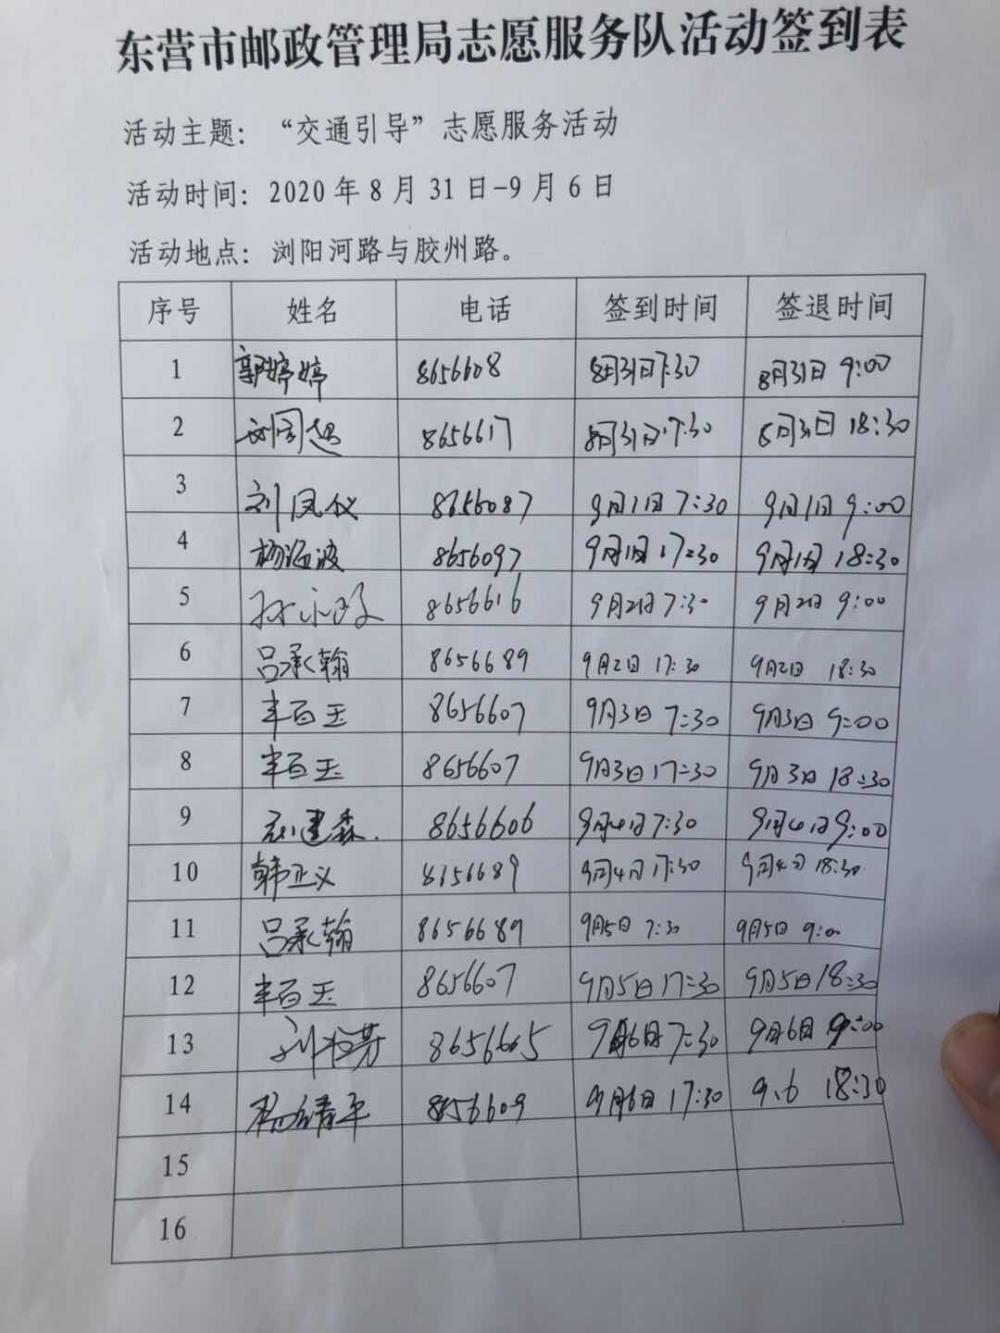 东营市邮政管理局志愿服务队活动签到表
活动主题：“交通引导”志愿服务活动
活动时间：2020年8月31日-9月6日
活动地点：浏阳河路与胶州路。
序号 姓名 电话 签到时间 签退时间
1 郭婷婷 8656608 8月31日7:30 8月31日 9:00
2 8656617 8月31日17:30 8月31日 18:30
3 刘凤仪 8656087 9月1日 7:30 9月1日 9:00
4 杨海波 8656097 9月1日 17:30 9月1日 18:30
5 8656616 9月2日 7:30 9月2日 9:00
6 吕承翰 8656689 9月2日 17:30 9月2日 18:30
7 丰百玉 8656607 9月3日 7:30 9月3日 9:00
8 丰百玉 8656607 9月3日 17:30 9月3日 18:30
9 建森. 8656606 9月4日 7:30 9月4日 9:00
10 韩正义 8656689 9月4日 17:30 9月4日 18:30
11 吕承翰 8656689 9月5日 7:30 9月5日 9:00
12 丰百玉 8656607 9月5日 17:30 9月5日 18:30
13 8656605 9月6日 7:30 9月6日 9:00
14 8656609 9月6日 17:30 9.6 18:30
15
16